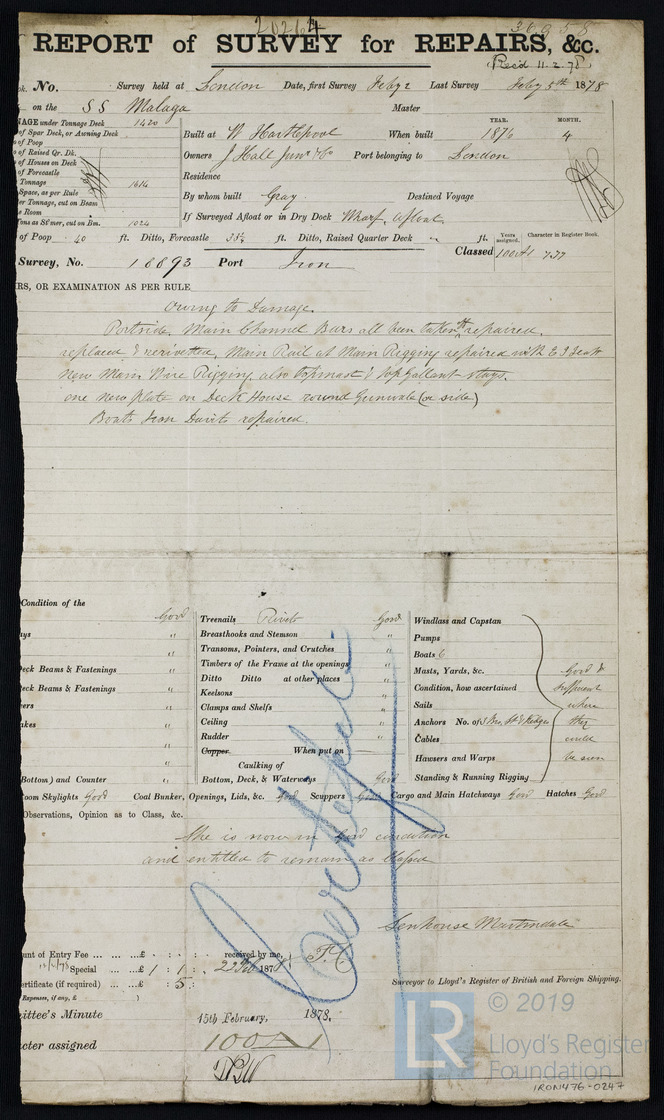 20264
30958
REPORT of SURVEY for REPAIRS, &c.
Rec'd 11.2.78
No. Survey held at London Date, first Survey Feby 2 Last Survey Feby 5th 1878
on the SS Malaga Master
NAGE under Tonnage Deck 1420
of Spar Deck, or Awning Deck
of Poop
of Raised Qr. Dk.
of Houses on Deck
of Forecastle
Tonnage 1614
Space, as per Rule
er Tonnage, cut on Beam
e Room
Tons as St'mer, cut on Bm. 1024
YEAR. MONTH.
Built at W Hartlepool When built 1876 4
Owners J Hall Junr & Co Port belonging to London
Residence
By whom built Gray Destined Voyage
If Surveyed Afloat or in Dry Dock Wharf, Afloat
of Poop 40 ft. Ditto, Forecastle 38½ ft. Ditto, Raised Quarter Deck ft.
Years assigned. Character in Register Book.
Classed 100A1 7,77
Survey, No. 18893 Port Iron
RS, OR EXAMINATION AS PER RULE
Owing to Damage.
Portside, Main Channel Bars all been taken off repaired,
replaced & rerivetted, Main Rail at Main Rigging repaired with E I Teak
New Main Wire Rigging also topmast & top Gallant stays.
one New plate on Deck House round Gunwale (or side)
Boats Iron Davits repaired.
Condition of the
Good
ys "
"
Deck Beams & Fastenings "
Deck Beams & Fastenings "
ers "
akes "
"
"
Bottom) and Counter "
Treenails Rivets Good
Breasthooks and Stemson "
Transoms, Pointers, and Crutches "
Timbers of the Frame at the openings "
Ditto Ditto at other places "
Keelsons "
Clamps and Shelfs "
Ceiling "
Rudder "
Copper When put on
Caulking of
Bottom, Deck, & Waterways Good
Windlass and Capstan
Pumps
Boats 6
Masts, Yards, &c.
Condition, how ascertained
Sails
Anchors No. of 3 Br, St & Kedge
Cables
Hawsers and Warps
Standing & Running Rigging
Good &
Sufficient
where
they
could
be seen
oom Skylights Good Coal Bunker, Openings, Lids, &c. Good Scuppers Good Cargo and Main Hatchways Good Hatches Good
Observations, Opinion as to Class, &c.
She is now in Good condition
and entitled to remain as Classed
Certificate
Senhouse Martindale
Surveyor to Lloyd's Register of British and Foreign Shipping.
unt of Entry Fee ... ... ...£ : : received by me,
Special ... ...£ 1 : 1 : 22 Feb 1878
ertificate (if required) ... £ : 5 :
Expenses, if any, £ )
ittee's Minute 15th February, 1878.
acter assigned 100A1
LR
© 2019
Lloyd's Register
Foundation
IRON476-0247